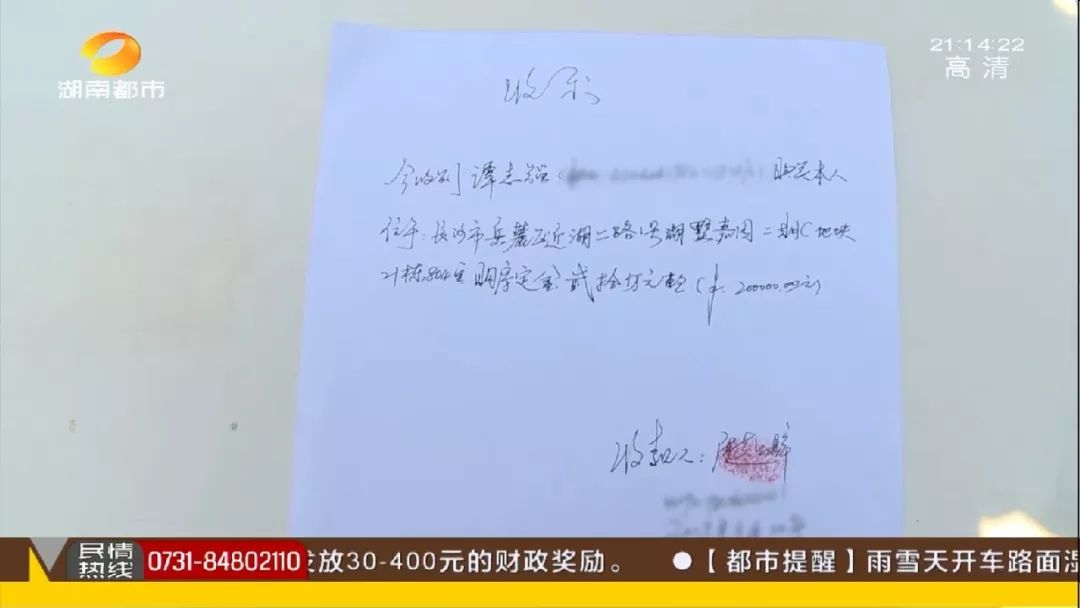 湖南都市
21:14:22
高清
收条
今收到谭志强 购买本人
位于:长沙市岳麓区近湖二路1号湖墅嘉园二期C地块
21栋804室购房定金贰拾万元整(¥:200000.00元)
收款人:
民情热线
0731-84802110
发放30-400元的财政奖励。 ●【都市提醒】雨雪天开车路面湿